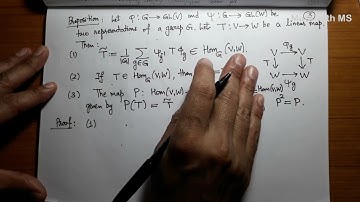 Proposition: Let φ: G → GL(V) and ψ: G → GL(W) be
two representations of a group G. Let T: V → W be a linear map.
Then:
(1) T̃ := 1/|G| ∑_{g∈G} ψ_{g⁻¹} T φ_g ∈ Hom_G(V,W).
(2) If T ∈ Hom_G(V,W), then
(3) The map P: Hom(V,W) Hom_G(V,W)
given by P(T) = T̃ P² = P.
Proof: (1)
V φ_g V
T T
W W
MS